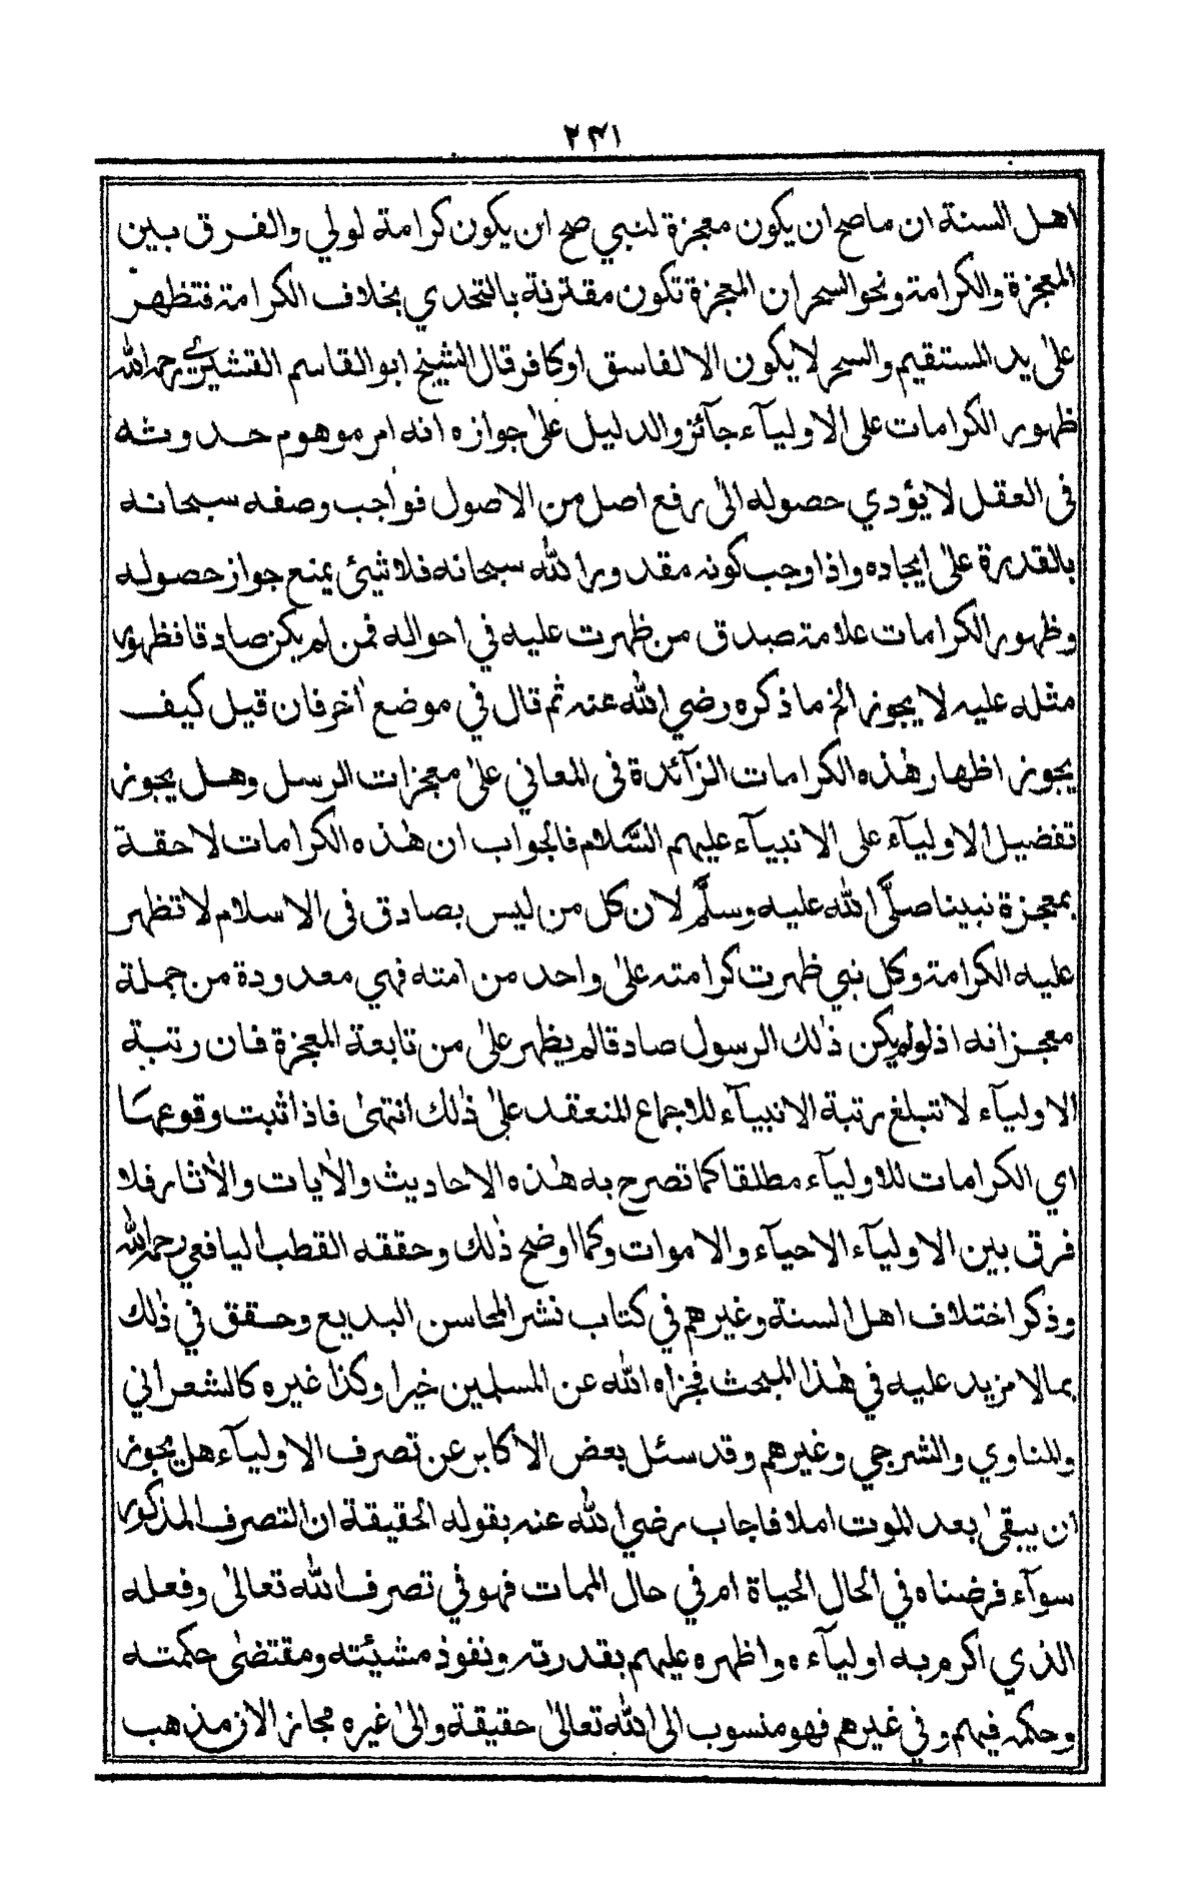 ٢٣١
اهل السنة ان ما صح ان يكون معجزة لنبي صح ان يكون كرامة لولي والفرق بين
المعجزة والكرامة ونحو السحر ان المعجزة تكون مقترنة بالتحدي بخلاف الكرامة فتظهر
علىٰ يد المستقيم والسحر لا يكون الا لفاسق او كافر قال الشيخ ابو القاسم القشيري رحمه الله
ظهور الكرامات على الاوليآء جآئز والدليل علىٰ جوازه انه امر موهوم حدوثه
فى العقل لا يؤدي حصوله الىٰ رفع اصل من الاصول فواجب وصفه سبحانه
بالقدرة علىٰ ايجاده واذا وجب كونه مقدورا لله سبحانه فلا شيئ يمنع جواز حصوله
وظهور الكرامات علامة صدق من ظهرت عليه في احواله فمن لم يكن صادقا فظهور
مثله عليه لا يجوز الخ ما ذكره رضي الله عنه ثم قال في موضع أخر فان قيل كيف
يجوز اظهار هٰذه الكرامات الزآئدة فى المعاني علىٰ معجزات الرسل وهل يجوز
تفضيل الاوليآء على الانبيآء عليهم السّلام فالجواب ان هٰذه الكرامات لاحقة
بمعجزة نبينا صلّى الله عليه وسلّم لان كل من ليس بصادق فى الاسلام لا تظهر
عليه الكرامة وكل نبي ظهرت كرامته علىٰ واحد من امته فهي معدودة من جملة
معجزاته اذ لو لم يكن ذٰلك الرسول صادقا لم يظهر علىٰ من تابعة المعجزة فان رتبة
الاوليآء لا تبلغ رتبة الانبيآء للاجماع المنعقد علىٰ ذٰلك انتهىٰ فاذا ثبت وقوعها
اي الكرامات للاوليآء مطلقا كما تصرح به هٰذه الاحاديث والأيات والأثار فلا
فرق بين الاوليآء الاحيآء والاموات وكما اوضح ذٰلك وحققه القطب اليافعي رحمه الله
وذكر اختلاف اهل السنة وغيرهم في كتاب نشر المحاسن البديع وحقق في ذٰلك
بما لا مزيد عليه في هٰذا المبحث فجزاه الله عن المسلمين خيرا وكذا غيره كالشعراني
والمناوي والشرجي وغيرهم وقد سئل بعض الاكابر عن تصرف الاوليآء هل يجوز
ان يبقىٰ بعد الموت ام لا فاجاب رضي الله عنه بقوله الحقيقة ان التصرف المذكور
سوآء فرضناه في الحال الحياة ام في حال الممات فهو في تصرف الله تعالىٰ وفعله
الذي اكرم به اوليآءه واظهره عليهم بقدرته ونفوذ مشيئته ومقتضىٰ حكمته
وحكمه فيهم وفي غيرهم فهو منسوب الى الله تعالىٰ حقيقة والىٰ غيره مجازا لان مذهب